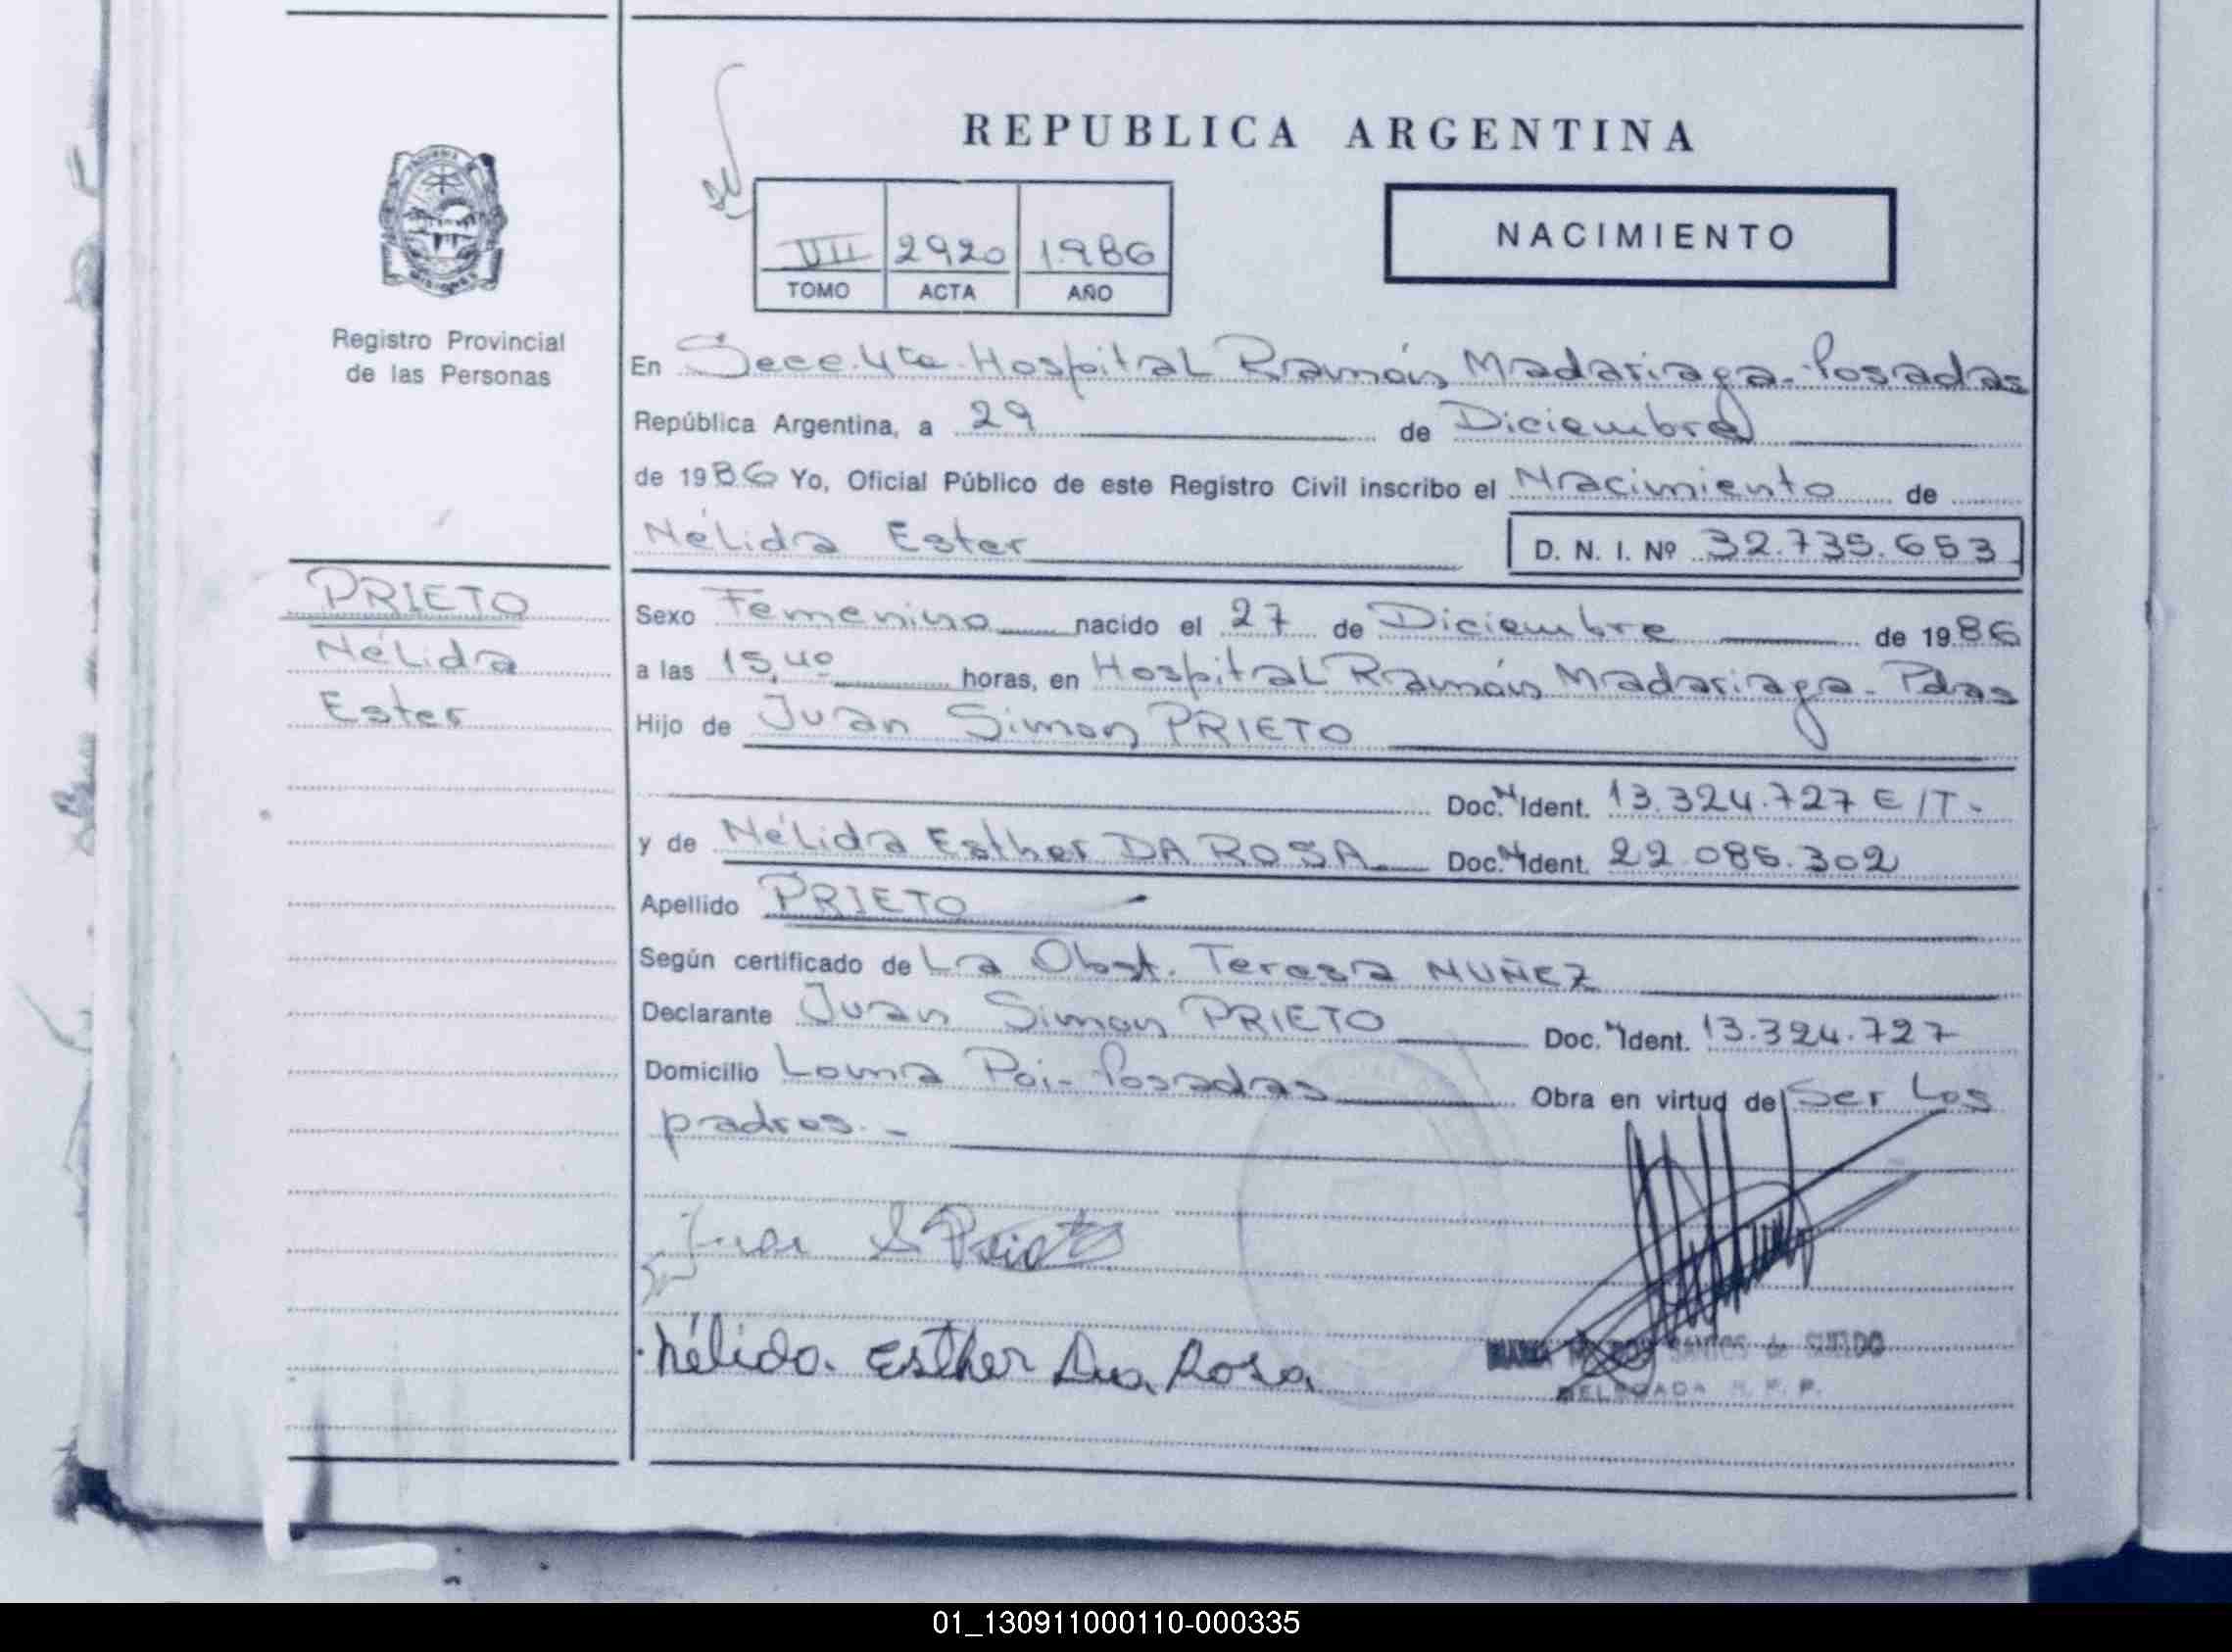 REPUBLICA ARGENTINA
NACIMIENTO
VIII 2920 1986
TOMO ACTA AÑO
Registro Provincial
de las Personas
En Secc. 4ta. Hospital Ramón Madariaga - Posadas
República Argentina, a 29 de Diciembre
de 1986 Yo, Oficial Público de este Registro Civil inscribo el Nacimiento de
Nélida Ester
D. N. I. Nº 32.735.653
PRIETO
Nélida
Ester
Sexo Femenino nacido el 27 de Diciembre de 1986
a las 15,40 horas, en Hospital Ramón Madariaga - Pdas
Hijo de Juan Simon PRIETO
Doc. N Ident. 13.324.727 E/T.
y de Nélida Esther DA ROSA Doc. N Ident. 22.085.302
Apellido PRIETO
Según certificado de La Obst. Teresa NUÑEZ
Declarante Juan Simon PRIETO Doc. N Ident. 13.324.727
Domicilio Loma Poi - Posadas Obra en virtud de Ser Los
padres. -
Juan S Prieto
Nélida Esther Da Rosa
SANTOS de
DELEGADA R. P. P.
01_130911000110-000335